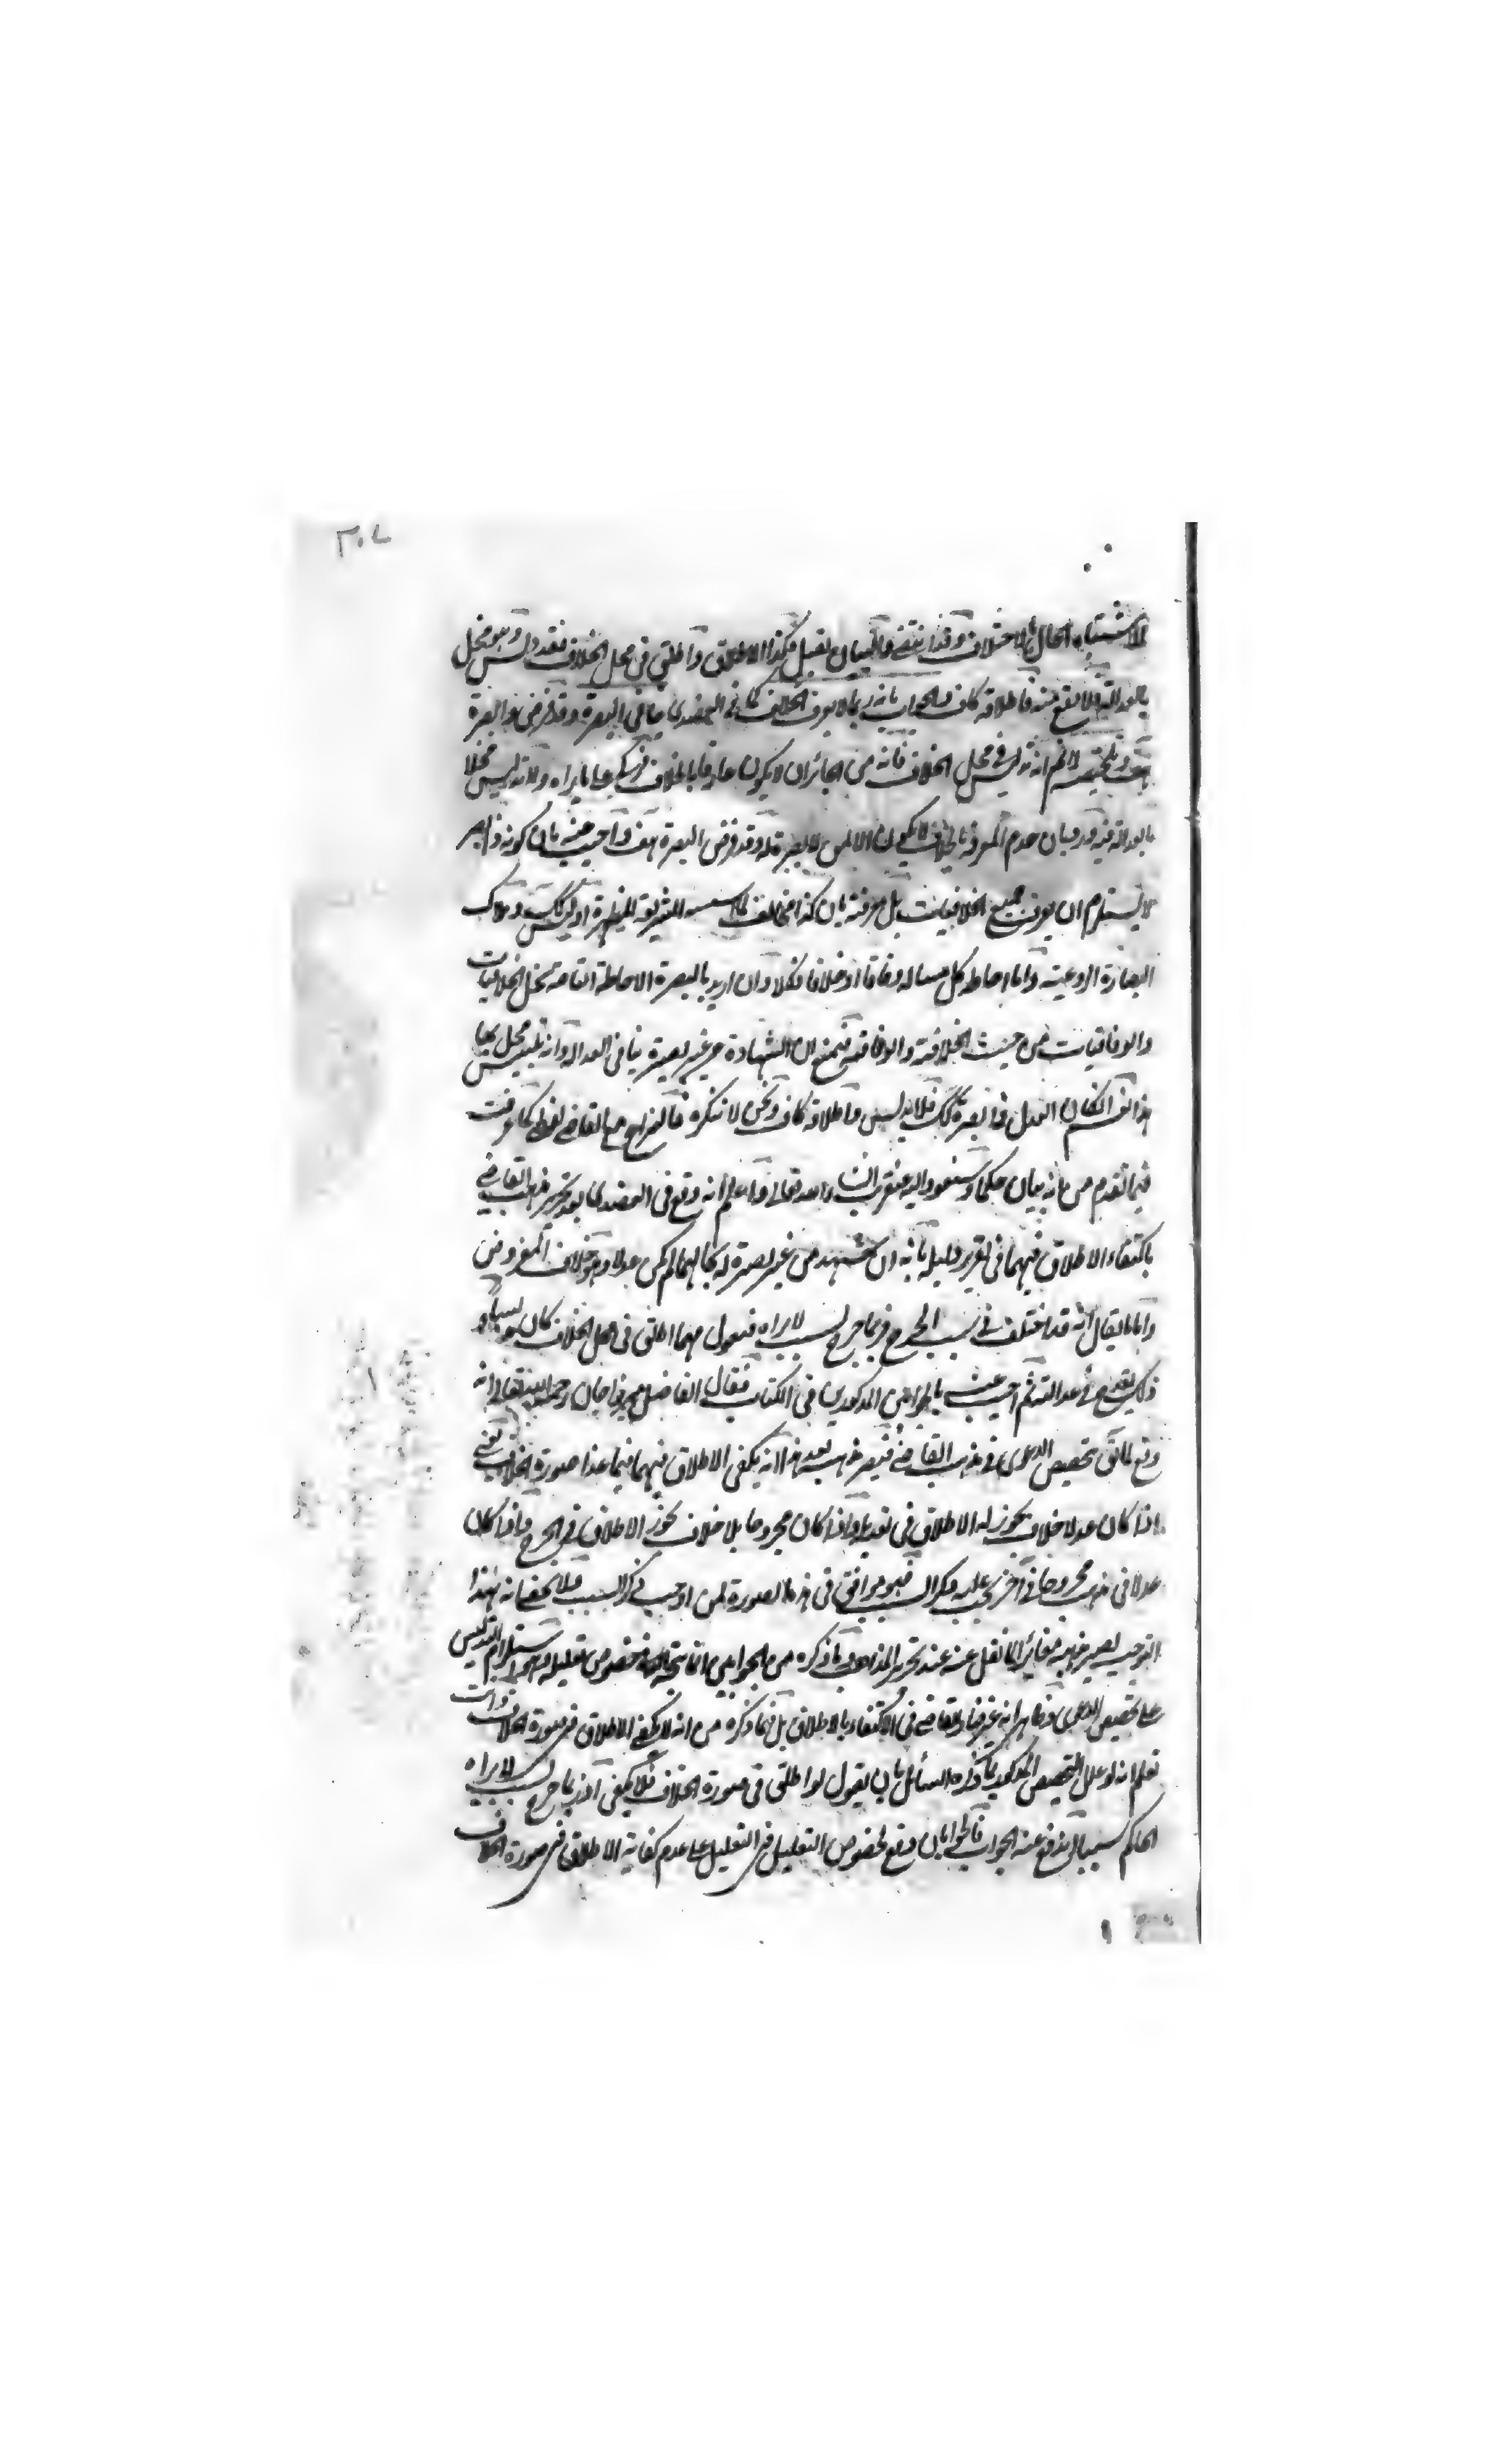 ٣٠٧
للاشتباه الحال بالاختلاف وقد انتفى فالبيان يقبل فكذا الاطلاق واطلق فى محل الخلاف فقد دلس وهو مخل
بالعدالة فلا يقع منه فاطلاقه كاف والجواب بانه ربما لا يعرف الخلاف كما فى العضدى ينافى البصرة وقد فرض ذو البصرة
لا نم انه تدليس فى محل الخلاف فانه من الجائز ان لا يكون عارفا بالخلاف على ما يراه ولانه ليس مخلا
بالعدالة فيه عدم المعرفة بالخلاف لا يكون الا لمن لا بصيرة له وقد فرض البصرة هف واجيب عنه بان كونه ذا بصر
لا يستلزم ان يعرف جميع الخلافيات بل معرفته بان كذا مخالف الشريعة المطهرة او ليس كذلك وملاك
البصارة الرعية واما احاطة كل مسألة وفاقا او خلافا فكلا وان اريد بالبصرة الاحاطة التامة بمحل الخلافيات
والوفاقيات من حيث الخلافية والوفاقية فيمنع ان الشهادة من غير بصيرة ينافى العدالة وانه تلبيس مخل بها
هذا نعم ان كان العدل ذا بصيرة كذلك فلا تدليس واطلاقه كاف ونحن لا ننكره فالنزاع مع القاضى لفظى كما عرفت
فيما تقدم من انه بيان حكما وسنعود اليه عنقريب ان شاء الله تعالى واعلم انه وقع فى العضدى بعد تحرير مذهب القاضى
باكتفاء الاطلاق فيهما فى تقرير دليله بانه ان شهد من غير بصيرة له بحالهما لم يكن عدلا وهو خلاف المفروض
واما ما يقال انه قد اختلف فى سبب الجرح فربما جرح بسبب لا يراه فنقول مهما اطلق فى محل الخلاف كان مدلسا و
ذلك يقدح فى عدالته ثم اجيب عنه بالجوابين المذكورين فى الكتاب فقال الفاضل ميرزاجان رحمه الله تعالى انه
وقع لما تخصيص الدعوى فى مذهب القاضى فيصير مذهبه بعد هذا انه يكفى الاطلاق فيهما فيما عدا صورة الخلاف يعنى
اذا كان عدلا بلا خلاف يجوز له الاطلاق فى تعديله واذا كان مجروحا بلا خلاف يجوز الاطلاق فى الجرح واذا كان
عدلا فى مذهب مجروحا فى آخر يجب عليه ذكر السبب فهو موافق فى هذه الصورة لمن اوجب ذكر السبب ولا يخفى انه بهذا
التوجيه يصير مذهبه مغائرا لما نقل عنه عند تحرير المذاهب وما ذكره من الجوابين انما يتجه خصوص تعليله وهو استلزام التدليس
على تخصيص الدعوى وظاهر انه غير ضار للقاضى فى الاكتفاء بالاطلاق بل فيما ذكره من انه لا يكفى الاطلاق فى صورة الخلاف وانت
تعلم انه لو علل التخصيص المذكور بما ذكره السائل بان يقول لو اطلق فى صورة الخلاف فلا يكفى اذ ربما جرح بسبب لا يراه
الحاكم سببا لاندفع عنه الجواب فالجوابان وقع لخصوص التعليل فى التعليل على عدم كفاية الاطلاق فى صورة الخلاف